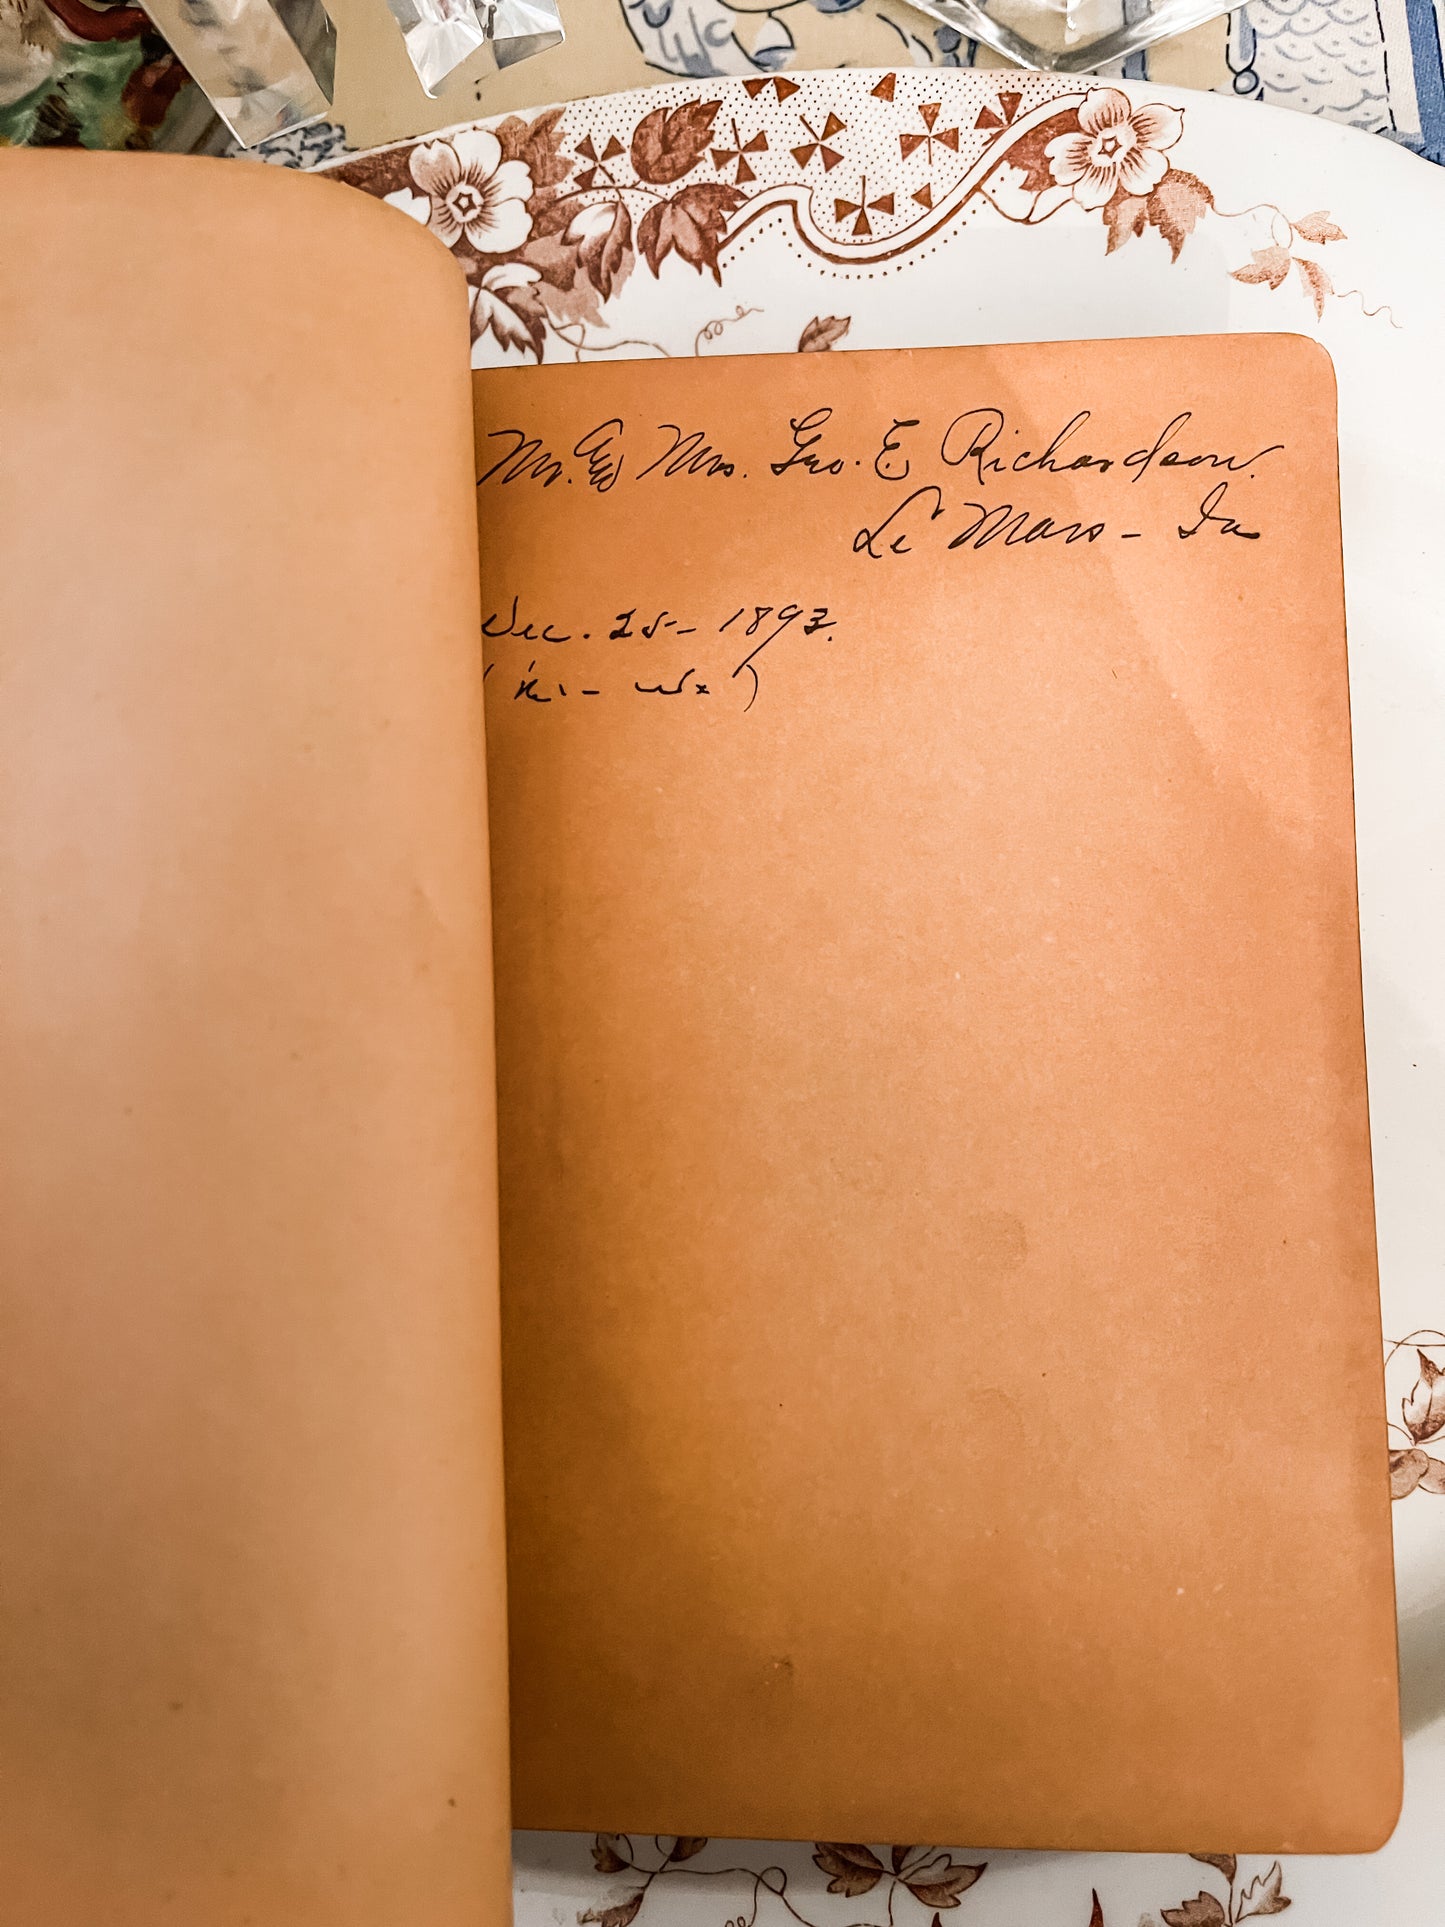 Mr. & Mrs. Geo. E. Richardson.
Le Mars - Ia
Dec. 25 - 1893.